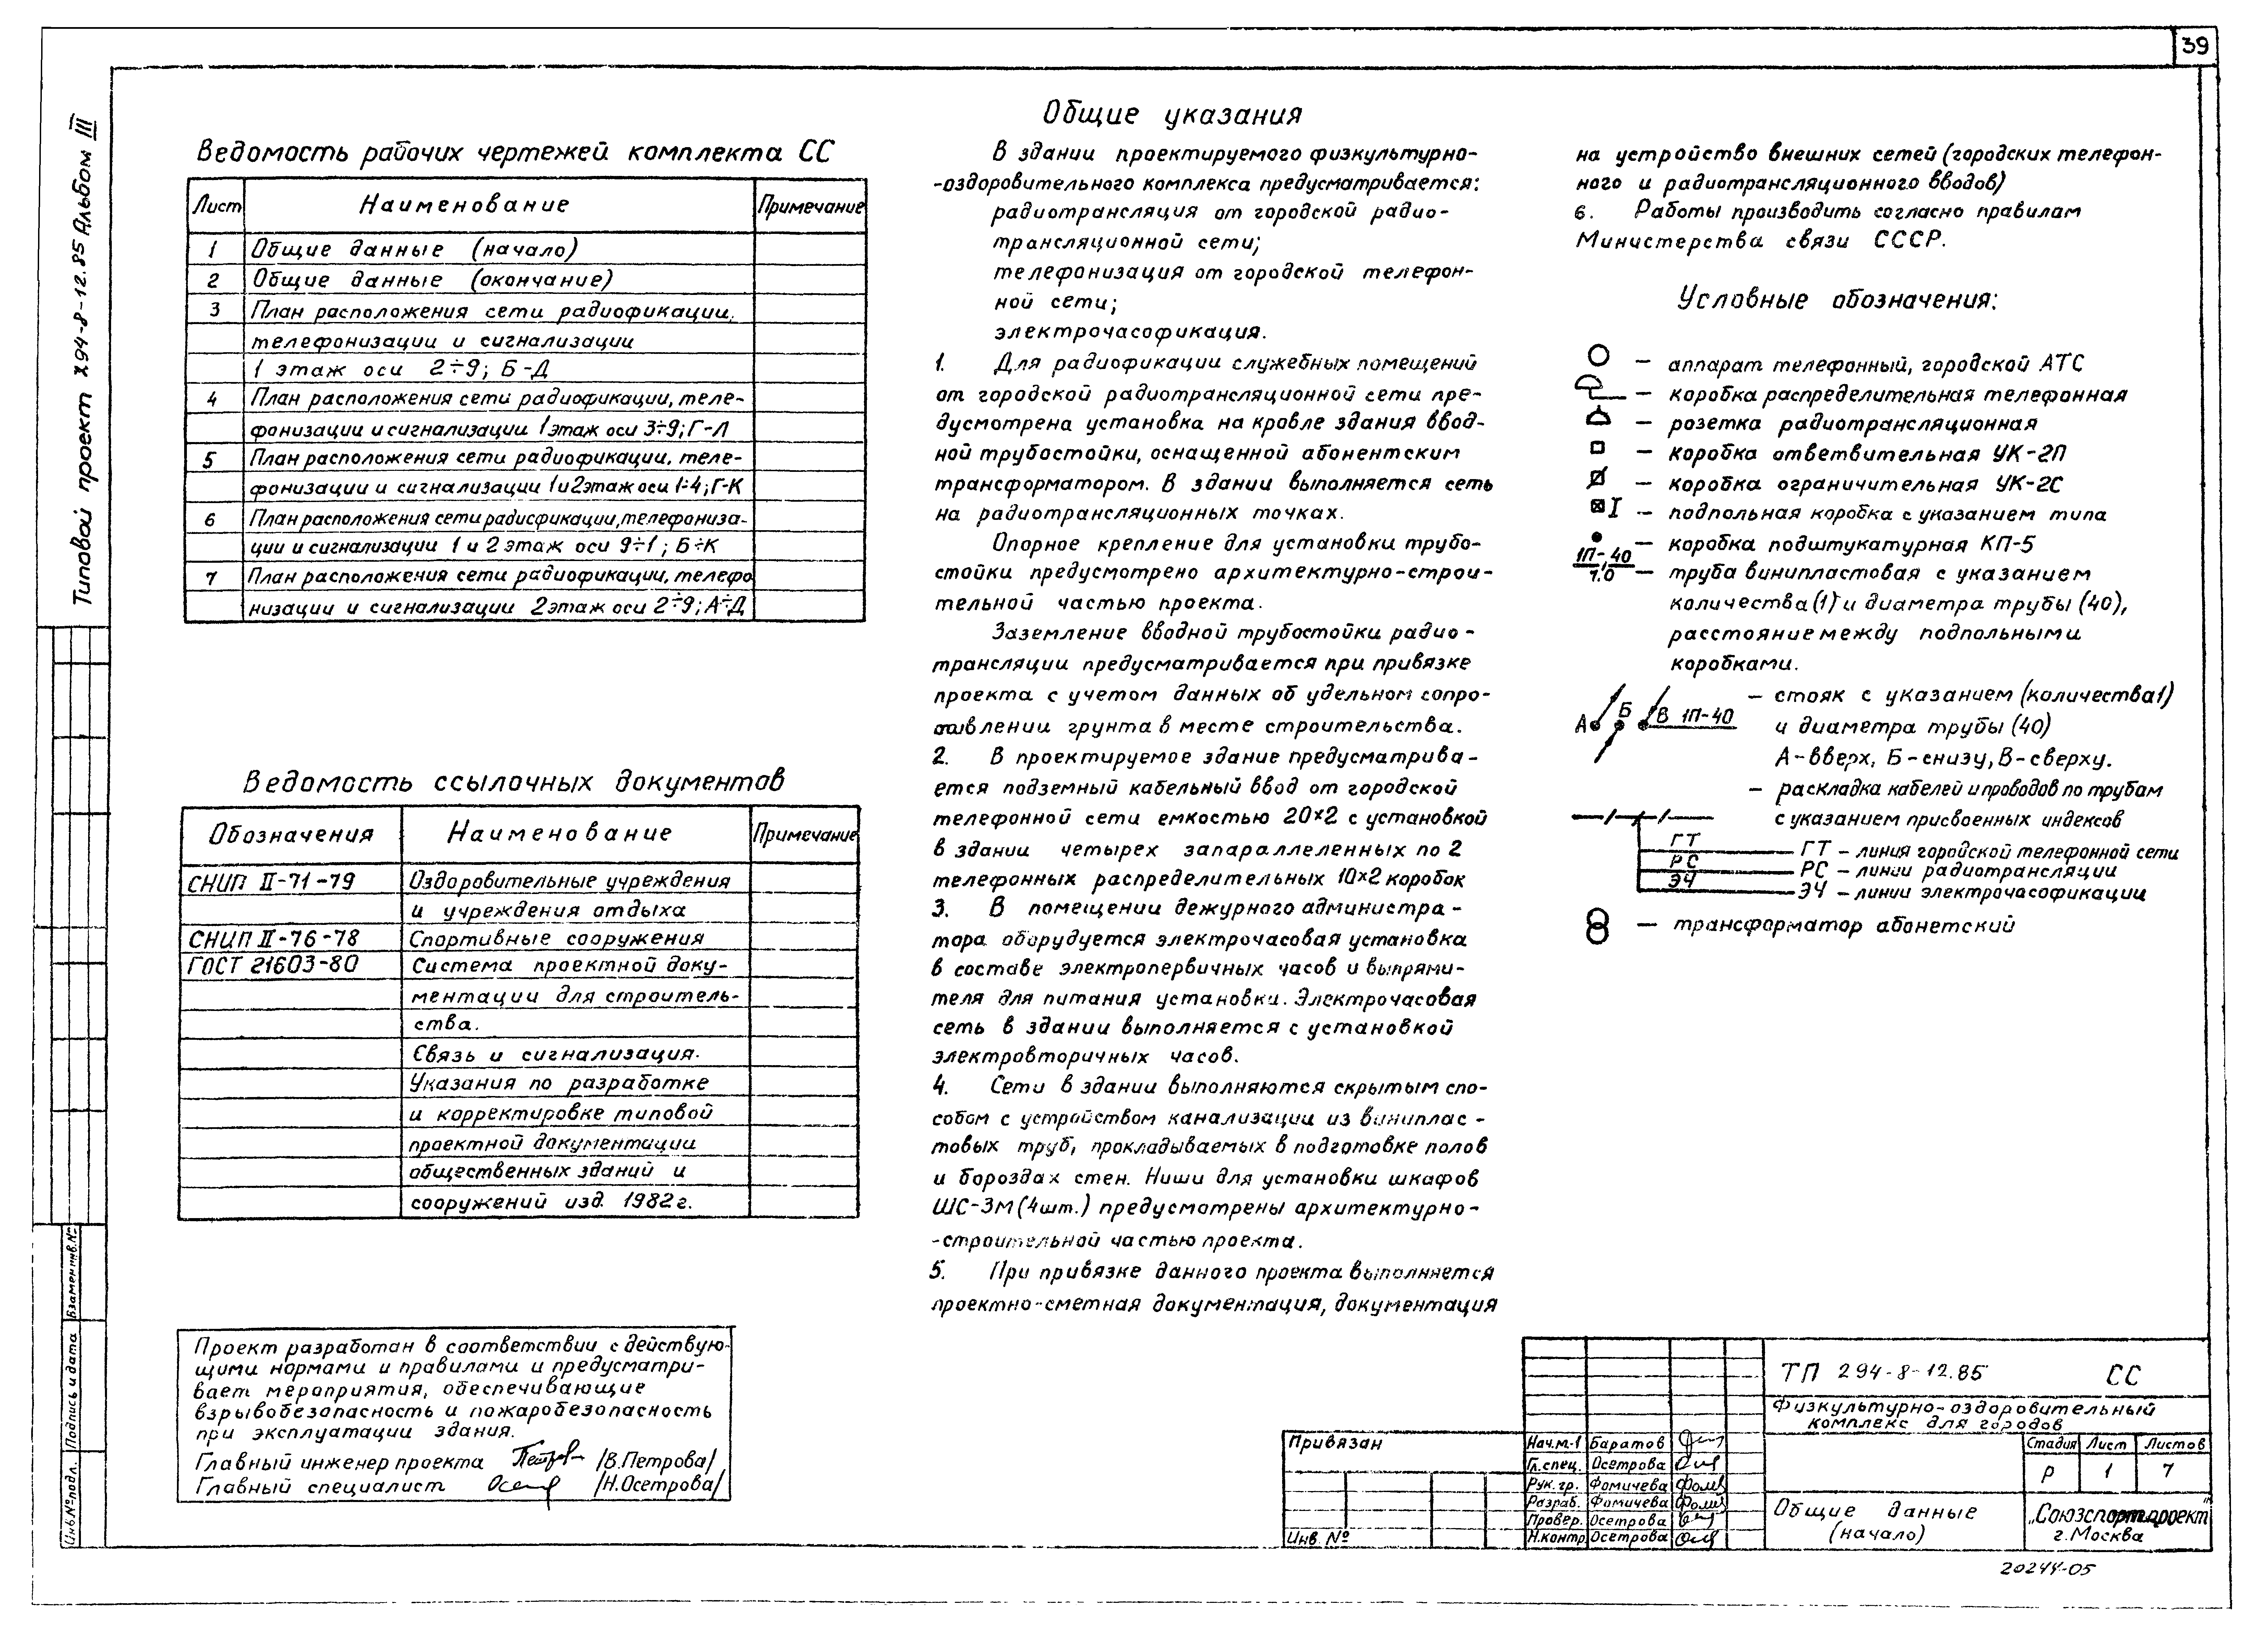 39
Типовой проект 294-8-12.85 Альбом III
Ведомость рабочих чертежей комплекта СС
Лист Наименование Примечание
1 Общие данные (начало)
2 Общие данные (окончание)
3 План расположения сети радиофикации,
телефонизации и сигнализации
1 этаж оси 2÷9; Б-Д
4 План расположения сети радиофикации, теле-
фонизации и сигнализации 1 этаж оси 3÷9; Г-Л
5 План расположения сети радиофикации, теле-
фонизации и сигнализации 1 и 2 этаж оси 1÷4; Г-К
6 План расположения сети радиофикации, телефониза-
ции и сигнализации 1 и 2 этаж оси 9÷1; Б÷К
7 План расположения сети радиофикации, телефо
низации и сигнализации 2 этаж оси 2÷9; А÷Д
Ведомость ссылочных документов
Обозначения Наименование Примечание
СНИП II-71-79 Оздоровительные учреждения
и учреждения отдыха
СНИП II-76-78 Спортивные сооружения
ГОСТ 21603-80 Система проектной доку-
ментации для строитель-
ства.
Связь и сигнализация.
Указания по разработке
и корректировке типовой
проектной документации
общественных зданий и
сооружений изд. 1982г.
Проект разработан в соответствии с действую-
щими нормами и правилами и предусматри-
вает мероприятия, обеспечивающие
взрывобезопасность и пожаробезопасность
при эксплуатации здания.
Главный инженер проекта /В.Петрова/
Главный специалист /Н.Осетрова/
Общие указания
В здании проектируемого физкультурно-
-оздоровительного комплекса предусматривается:
радиотрансляция от городской радио-
трансляционной сети;
телефонизация от городской телефон-
ной сети;
электрочасофикация.
1. Для радиофикации служебных помещений
от городской радиотрансляционной сети пре-
дусмотрена установка на кровле здания ввод-
ной трубостойки, оснащенной абонентским
трансформатором. В здании выполняется сеть
на радиотрансляционных точках.
Опорное крепление для установки трубо-
стойки предусмотрено архитектурно-строи-
тельной частью проекта.
Заземление вводной трубостойки радио-
трансляции предусматривается при привязке
проекта с учетом данных об удельном сопро-
тивлении грунта в месте строительства.
2. В проектируемое здание предусматрива-
ется подземный кабельный ввод от городской
телефонной сети емкостью 20×2 с установкой
в здании четырех запараллеленных по 2
телефонных распределительных 10×2 коробок
3. В помещении дежурного администра-
тора оборудуется электрочасовая установка
в составе электропервичных часов и выпрями-
теля для питания установки. Электрочасовая
сеть в здании выполняется с установкой
электровторичных часов.
4. Сети в здании выполняются скрытым спо-
собом с устройством канализации из виниплас-
товых труб, прокладываемых в подготовке полов
и бороздах стен. Ниши для установки шкафов
ШС-3м (4шт.) предусмотрены архитектурно-
-строительной частью проекта.
5. При привязке данного проекта выполняется
проектно-сметная документация, документация
на устройство внешних сетей (городских телефон-
ного и радиотрансляционного вводов)
6. Работы производить согласно правилам
Министерства связи СССР.
Условные обозначения:
– аппарат телефонный, городской АТС
– коробка распределительная телефонная
– розетка радиотрансляционная
– коробка ответвительная УК-2П
– коробка ограничительная УК-2С
I – подпольная коробка с указанием типа
– коробка подштукатурная КП-5
1П-40
7.0 – труба винипластовая с указанием
количества (1) и диаметра трубы (40),
расстояние между подпольными
коробками.
– стояк с указанием (количества1)
А Б В 1П-40 и диаметра трубы (40)
А-вверх, Б-снизу, В-сверху.
– раскладка кабелей и проводов по трубам
с указанием присвоенных индексов
ГТ ГТ – линия городской телефонной сети
РС РС – линии радиотрансляции
ЭЧ ЭЧ – линии электрочасофикации
– трансформатор абонетский
ТП 294-8-12.85 СС
Физкультурно-оздоровительный
комплекс для городов
Стадия Лист Листов
Р 1 7
Общие данные
(начало)
„Союзспортпроект"
г.Москва
Привязан
Инв. №
Нач.м-1 Баратов
Гл.спец. Осетрова
Рук.гр. Фомичева
Разраб. Фомичева
Провер. Осетрова
Н.контр. Осетрова
Взамен инв.№
Подпись и дата
Инв.№ подл.
20244-05